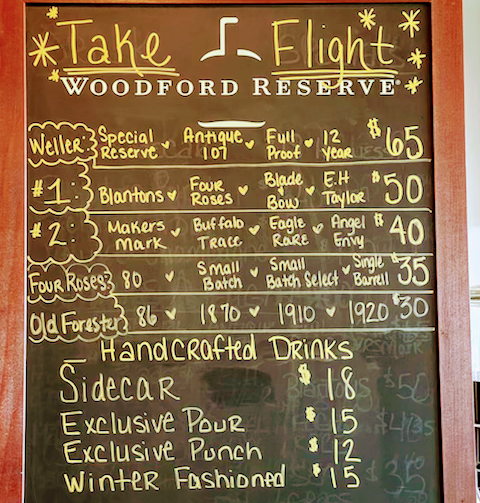 Take Flight
WOODFORD RESERVE
Weller: Special Reserve Antique 107 Full Proof 12 Year $65
#1: Blantons Four Roses Blade & Bow E.H Taylor $50
#2: Makers Mark Buffalo Trace Eagle Rare Angel Envy $40
Four Roses: 80 Small Batch Small Batch Select Single Barrell $35
Old Forester: 86 1870 1910 1920 $30
Handcrafted Drinks
Sidecar $18
Exclusive Pour $15
Exclusive Punch $12
Winter Fashioned $15